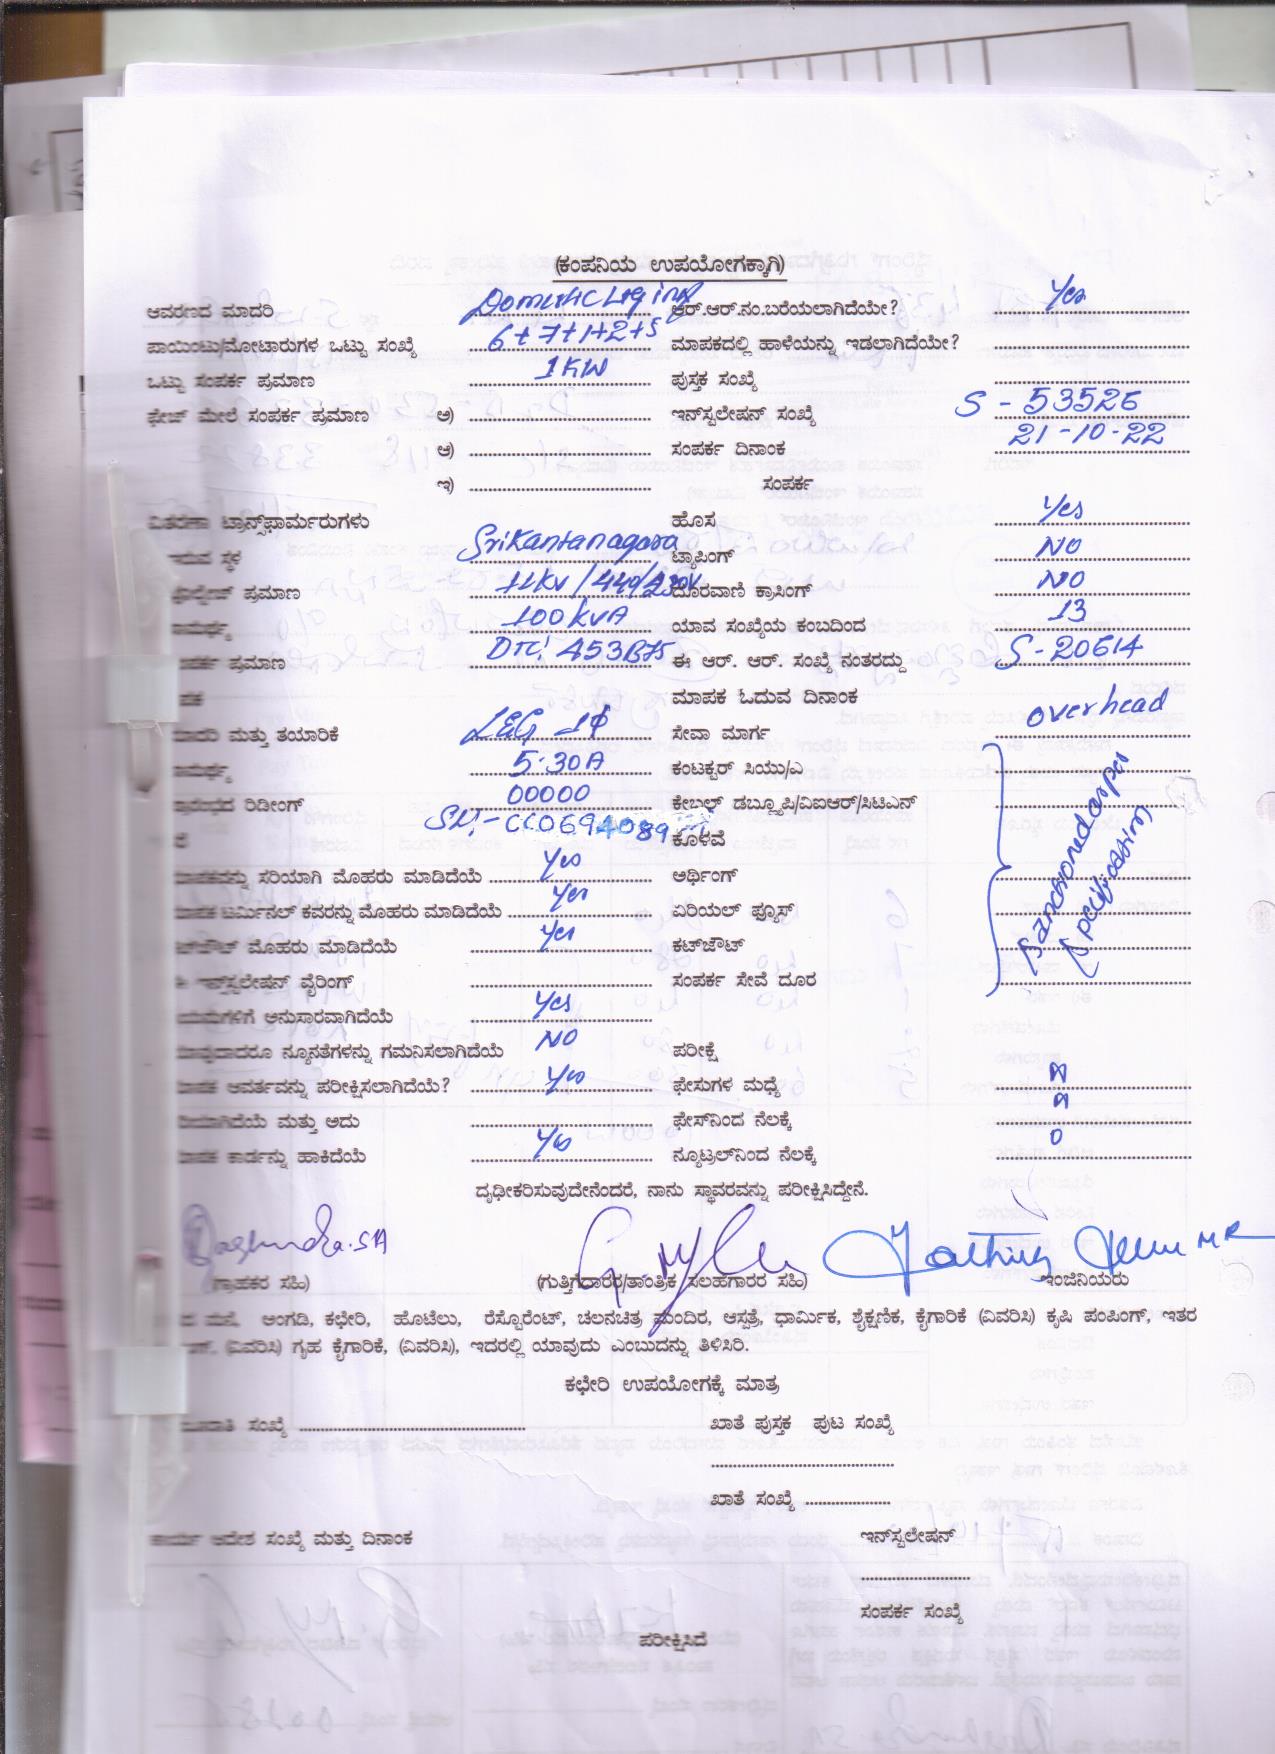 (ಕಂಪನಿಯ ಉಪಯೋಗಕ್ಕಾಗಿ)
ಆವರಣದ ಮಾದರಿ ಆರ್.ಆರ್.ನಂ.ಬರೆಯಲಾಗಿದೆಯೇ? Yes
ಪಾಯಿಂಟು/ಮೋಟಾರುಗಳ ಒಟ್ಟು ಸಂಖ್ಯೆ 6+7+1+2+5 ಮಾಪಕದಲ್ಲಿ ಹಾಳೆಯನ್ನು ಇಡಲಾಗಿದೆಯೇ?
ಒಟ್ಟು ಸಂಪರ್ಕ ಪ್ರಮಾಣ 1KW ಪುಸ್ತಕ ಸಂಖ್ಯೆ
ಫೇಜ್ ಮೇಲೆ ಸಂಪರ್ಕ ಪ್ರಮಾಣ ಅ) ಇನ್‌ಸ್ಟಲೇಷನ್ ಸಂಖ್ಯೆ S - 53526
ಆ) ಸಂಪರ್ಕ ದಿನಾಂಕ 21-10-22
ಇ) ಸಂಪರ್ಕ
ವಿತರಣಾ ಟ್ರಾನ್ಸ್‌ಫಾರ್ಮರುಗಳು ಹೊಸ Yes
ಸ್ಥಳ Srikantanagara ಟ್ಯಾಪಿಂಗ್ NO
ಪ್ರಮಾಣ 11KV/440/230V ದೂರವಾಣಿ ಕ್ರಾಸಿಂಗ್ NO
100KVA ಯಾವ ಸಂಖ್ಯೆಯ ಕಂಬದಿಂದ 13
ಪ್ರಮಾಣ ಈ ಆರ್. ಆರ್. ಸಂಖ್ಯೆ ನಂತರದ್ದು S-20614
ಮಾಪಕ ಓದುವ ದಿನಾಂಕ
ಮತ್ತು ತಯಾರಿಕೆ ಸೇವಾ ಮಾರ್ಗ overhead
5-30A ಕಂಟಕ್ಟರ್ ಸಿಯು/ಎ
ರಿಡೀಂಗ್ 00000 ಕೇಬಲ್ ಡಬ್ಲ್ಯೂಪಿ/ವಿಐಆರ್/ಸಿಟಿಎನ್
CC0694089 ಕೊಳವೆ
ಸರಿಯಾಗಿ ಮೊಹರು ಮಾಡಿದೆಯೆ Yes ಅರ್ಥಿಂಗ್
ಟರ್ಮಿನಲ್ ಕವರನ್ನು ಮೊಹರು ಮಾಡಿದೆಯೆ Yes ಏರಿಯಲ್ ಫ್ಯೂಸ್
ಮೊಹರು ಮಾಡಿದೆಯೆ Yes ಕಟ್‌ಔಟ್
ಇನ್‌ಸ್ಟಲೇಷನ್ ವೈರಿಂಗ್ ಸಂಪರ್ಕ ಸೇವೆ ದೂರ
ಅನುಸಾರವಾಗಿದೆಯೆ Yes
ನ್ಯೂನತೆಗಳನ್ನು ಗಮನಿಸಲಾಗಿದೆಯೆ NO ಪರೀಕ್ಷೆ
ಆವರ್ತವನ್ನು ಪರೀಕ್ಷಿಸಲಾಗಿದೆಯೆ? Yes ಫೇಸುಗಳ ಮಧ್ಯೆ
ಮತ್ತು ಅದು ಫೇಸ್‌ನಿಂದ ನೆಲಕ್ಕೆ
ಕಾರ್ಡನ್ನು ಹಾಕಿದೆಯೆ Yes ನ್ಯೂಟ್ರಲ್‌ನಿಂದ ನೆಲಕ್ಕೆ 0
ದೃಢೀಕರಿಸುವುದೇನೆಂದರೆ, ನಾನು ಸ್ಥಾವರವನ್ನು ಪರೀಕ್ಷಿಸಿದ್ದೇನೆ.
(ಗ್ರಾಹಕರ ಸಹಿ) (ಗುತ್ತಿಗೆದಾರರ/ತಾಂತ್ರಿಕ ಸಲಹಗಾರರ ಸಹಿ) ಇಂಜಿನಿಯರು
ಅಂಗಡಿ, ಕಛೇರಿ, ಹೊಟೆಲು, ರೆಸ್ಟೊರೆಂಟ್, ಚಲನಚಿತ್ರ ಮಂದಿರ, ಆಸ್ಪತ್ರೆ, ಧಾರ್ಮಿಕ, ಶೈಕ್ಷಣಿಕ, ಕೈಗಾರಿಕೆ (ವಿವರಿಸಿ) ಕೃಷಿ ಪಂಪಿಂಗ್, ಇತರ
(ವಿವರಿಸಿ) ಗೃಹ ಕೈಗಾರಿಕೆ, (ವಿವರಿಸಿ), ಇದರಲ್ಲಿ ಯಾವುದು ಎಂಬುದನ್ನು ತಿಳಿಸಿರಿ.
ಕಛೇರಿ ಉಪಯೋಗಕ್ಕೆ ಮಾತ್ರ
ಸಂಖ್ಯೆ ಖಾತೆ ಪುಸ್ತಕ ಪುಟ ಸಂಖ್ಯೆ
ಖಾತೆ ಸಂಖ್ಯೆ
ಕಾರ್ಯ ಆದೇಶ ಸಂಖ್ಯೆ ಮತ್ತು ದಿನಾಂಕ ಇನ್‌ಸ್ಟಲೇಷನ್
ಸಂಪರ್ಕ ಸಂಖ್ಯೆ
ಪರೀಕ್ಷಿಸಿದೆ